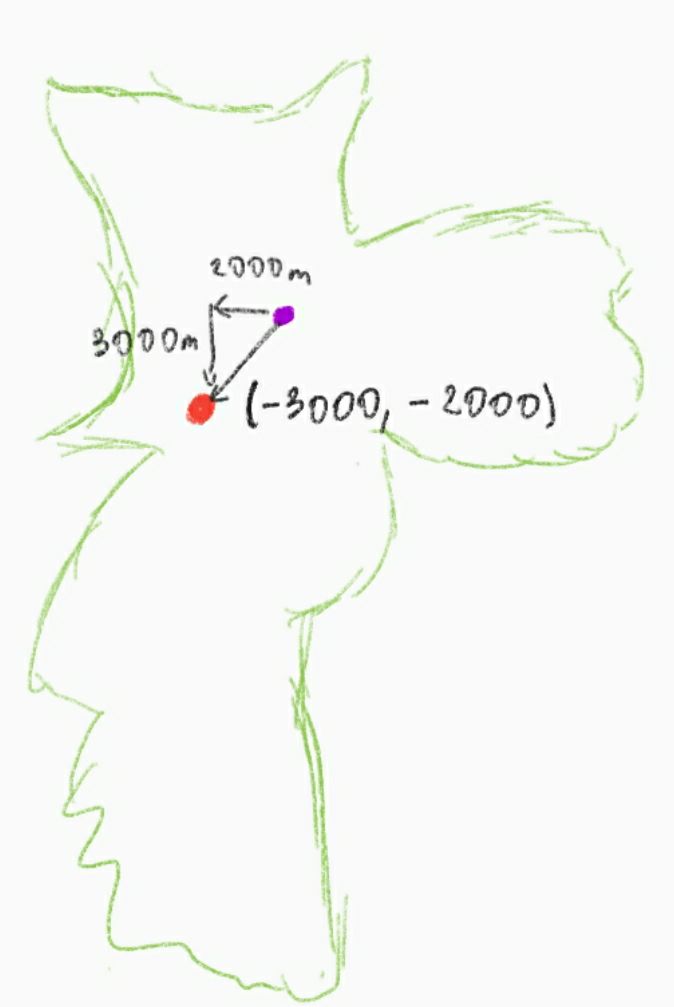 2000m
3000m
(-3000, -2000)